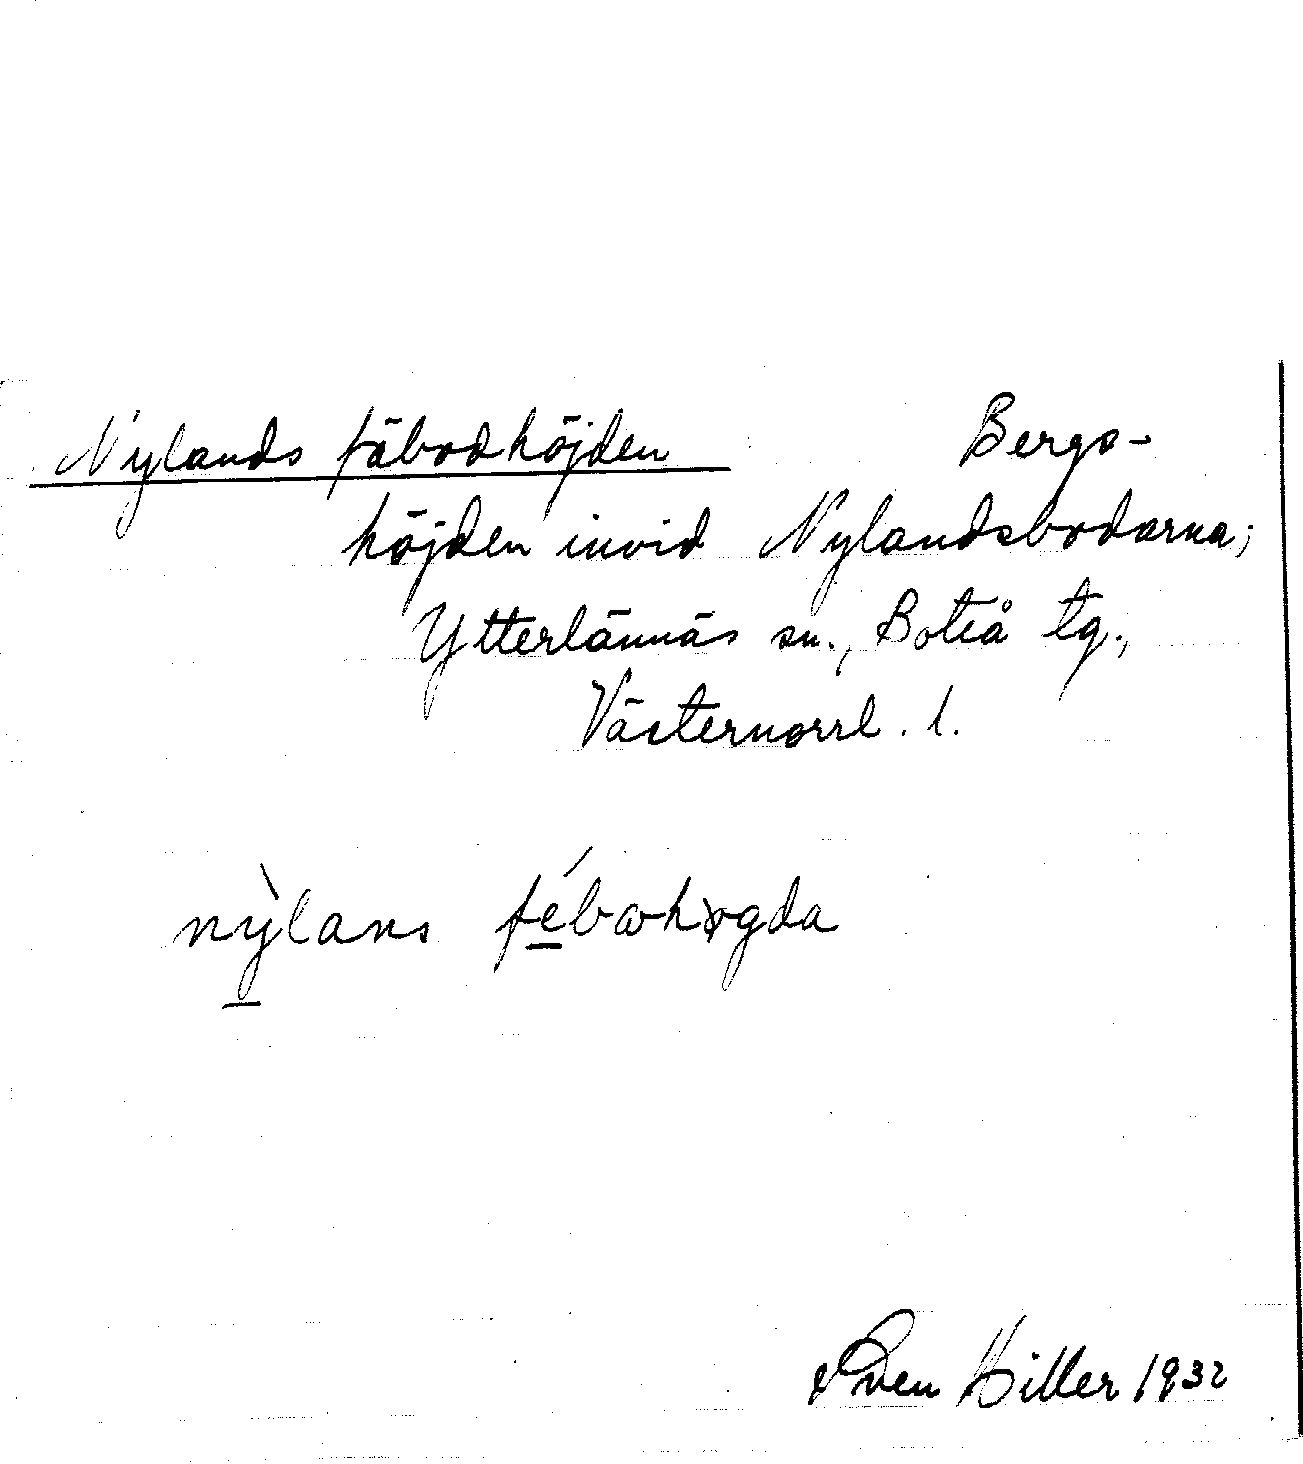 Nylands fäbodhöjden Bergs-
höjden invid Nylandsbodarna;
Ytterlännäs sn., Boteå tg.,
Västernorrl. l.
nỳlans fébωhøgda
Sven Hiller 1932